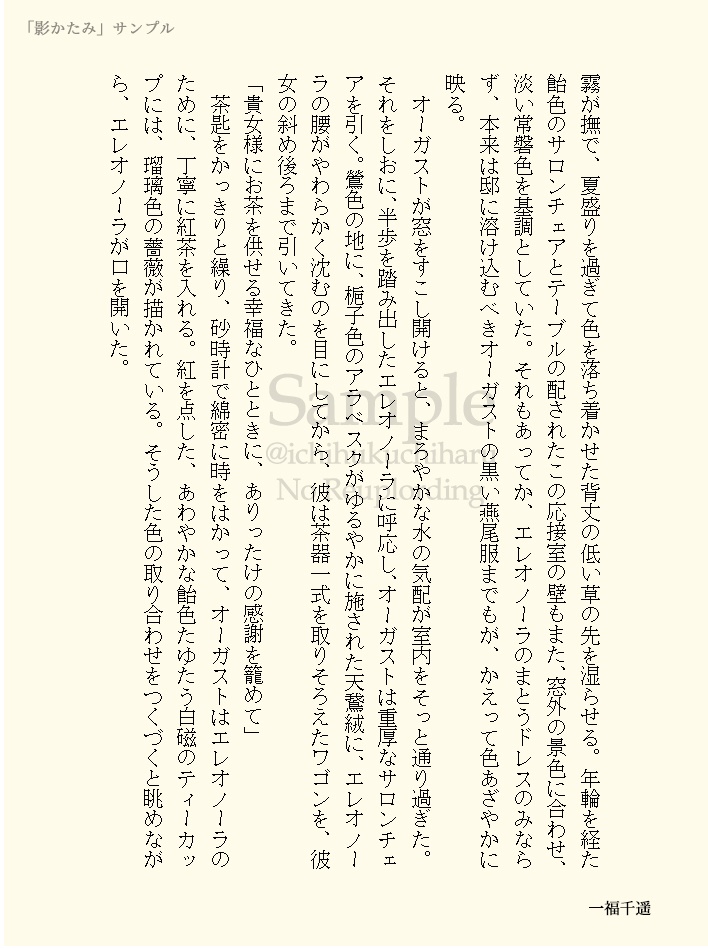 「影かたみ」サンプル
霧が撫で、夏盛りを過ぎて色を落ち着かせた背丈の低い草の先を湿らせる。年輪を経た
飴色のサロンチェアとテーブルの配されたこの応接室の壁もまた、窓外の景色に合わせ、
淡い常磐色を基調としていた。それもあってか、エレオノーラのまとうドレスのみなら
ず、本来は邸に溶け込むべきオーガストの黒い燕尾服までもが、かえって色あざやかに
映る。
オーガストが窓をすこし開けると、まろやかな水の気配が室内をそっと通り過ぎた。
それをしおに、半歩を踏み出したエレオノーラに呼応し、オーガストは重厚なサロンチェ
アを引く。鶯色の地に、梔子色のアラベスクがゆるやかに施された天鵞絨に、エレオノー
ラの腰がやわらかく沈むのを目にしてから、彼は茶器一式を取りそろえたワゴンを、彼
女の斜め後ろまで引いてきた。
「貴女様にお茶を供せる幸福なひとときに、ありったけの感謝を籠めて」
茶匙をかっきりと繰り、砂時計で綿密に時をはかって、オーガストはエレオノーラの
ために、丁寧に紅茶を入れる。紅を点した、あわやかな飴色たゆたう白磁のティーカッ
プには、瑠璃色の薔薇が描かれている。そうした色の取り合わせをつくづくと眺めなが
ら、エレオノーラが口を開いた。
Sample
@ichifukuchiharu
No Reuploading
一福千遥